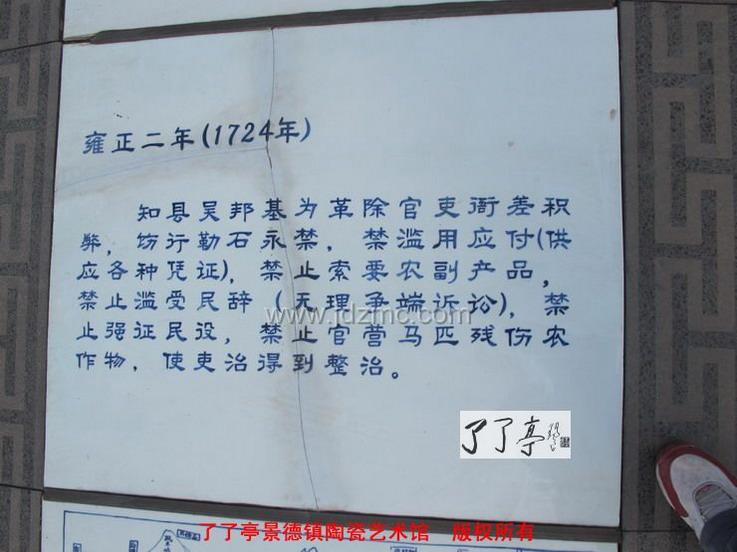 雍正二年(1724年)
知县吴邦基为革除官吏衙差积
弊，饬行勒石永禁，禁滥用应付(供
应各种凭证)，禁止索要农副产品，
禁止滥受民辞（无理争端诉讼)，禁
止强征民役，禁止官营马匹残伤农
作物，使吏治得到整治。
www.jdzmc.com
了了亭
了了亭景德镇陶瓷艺术馆 版权所有